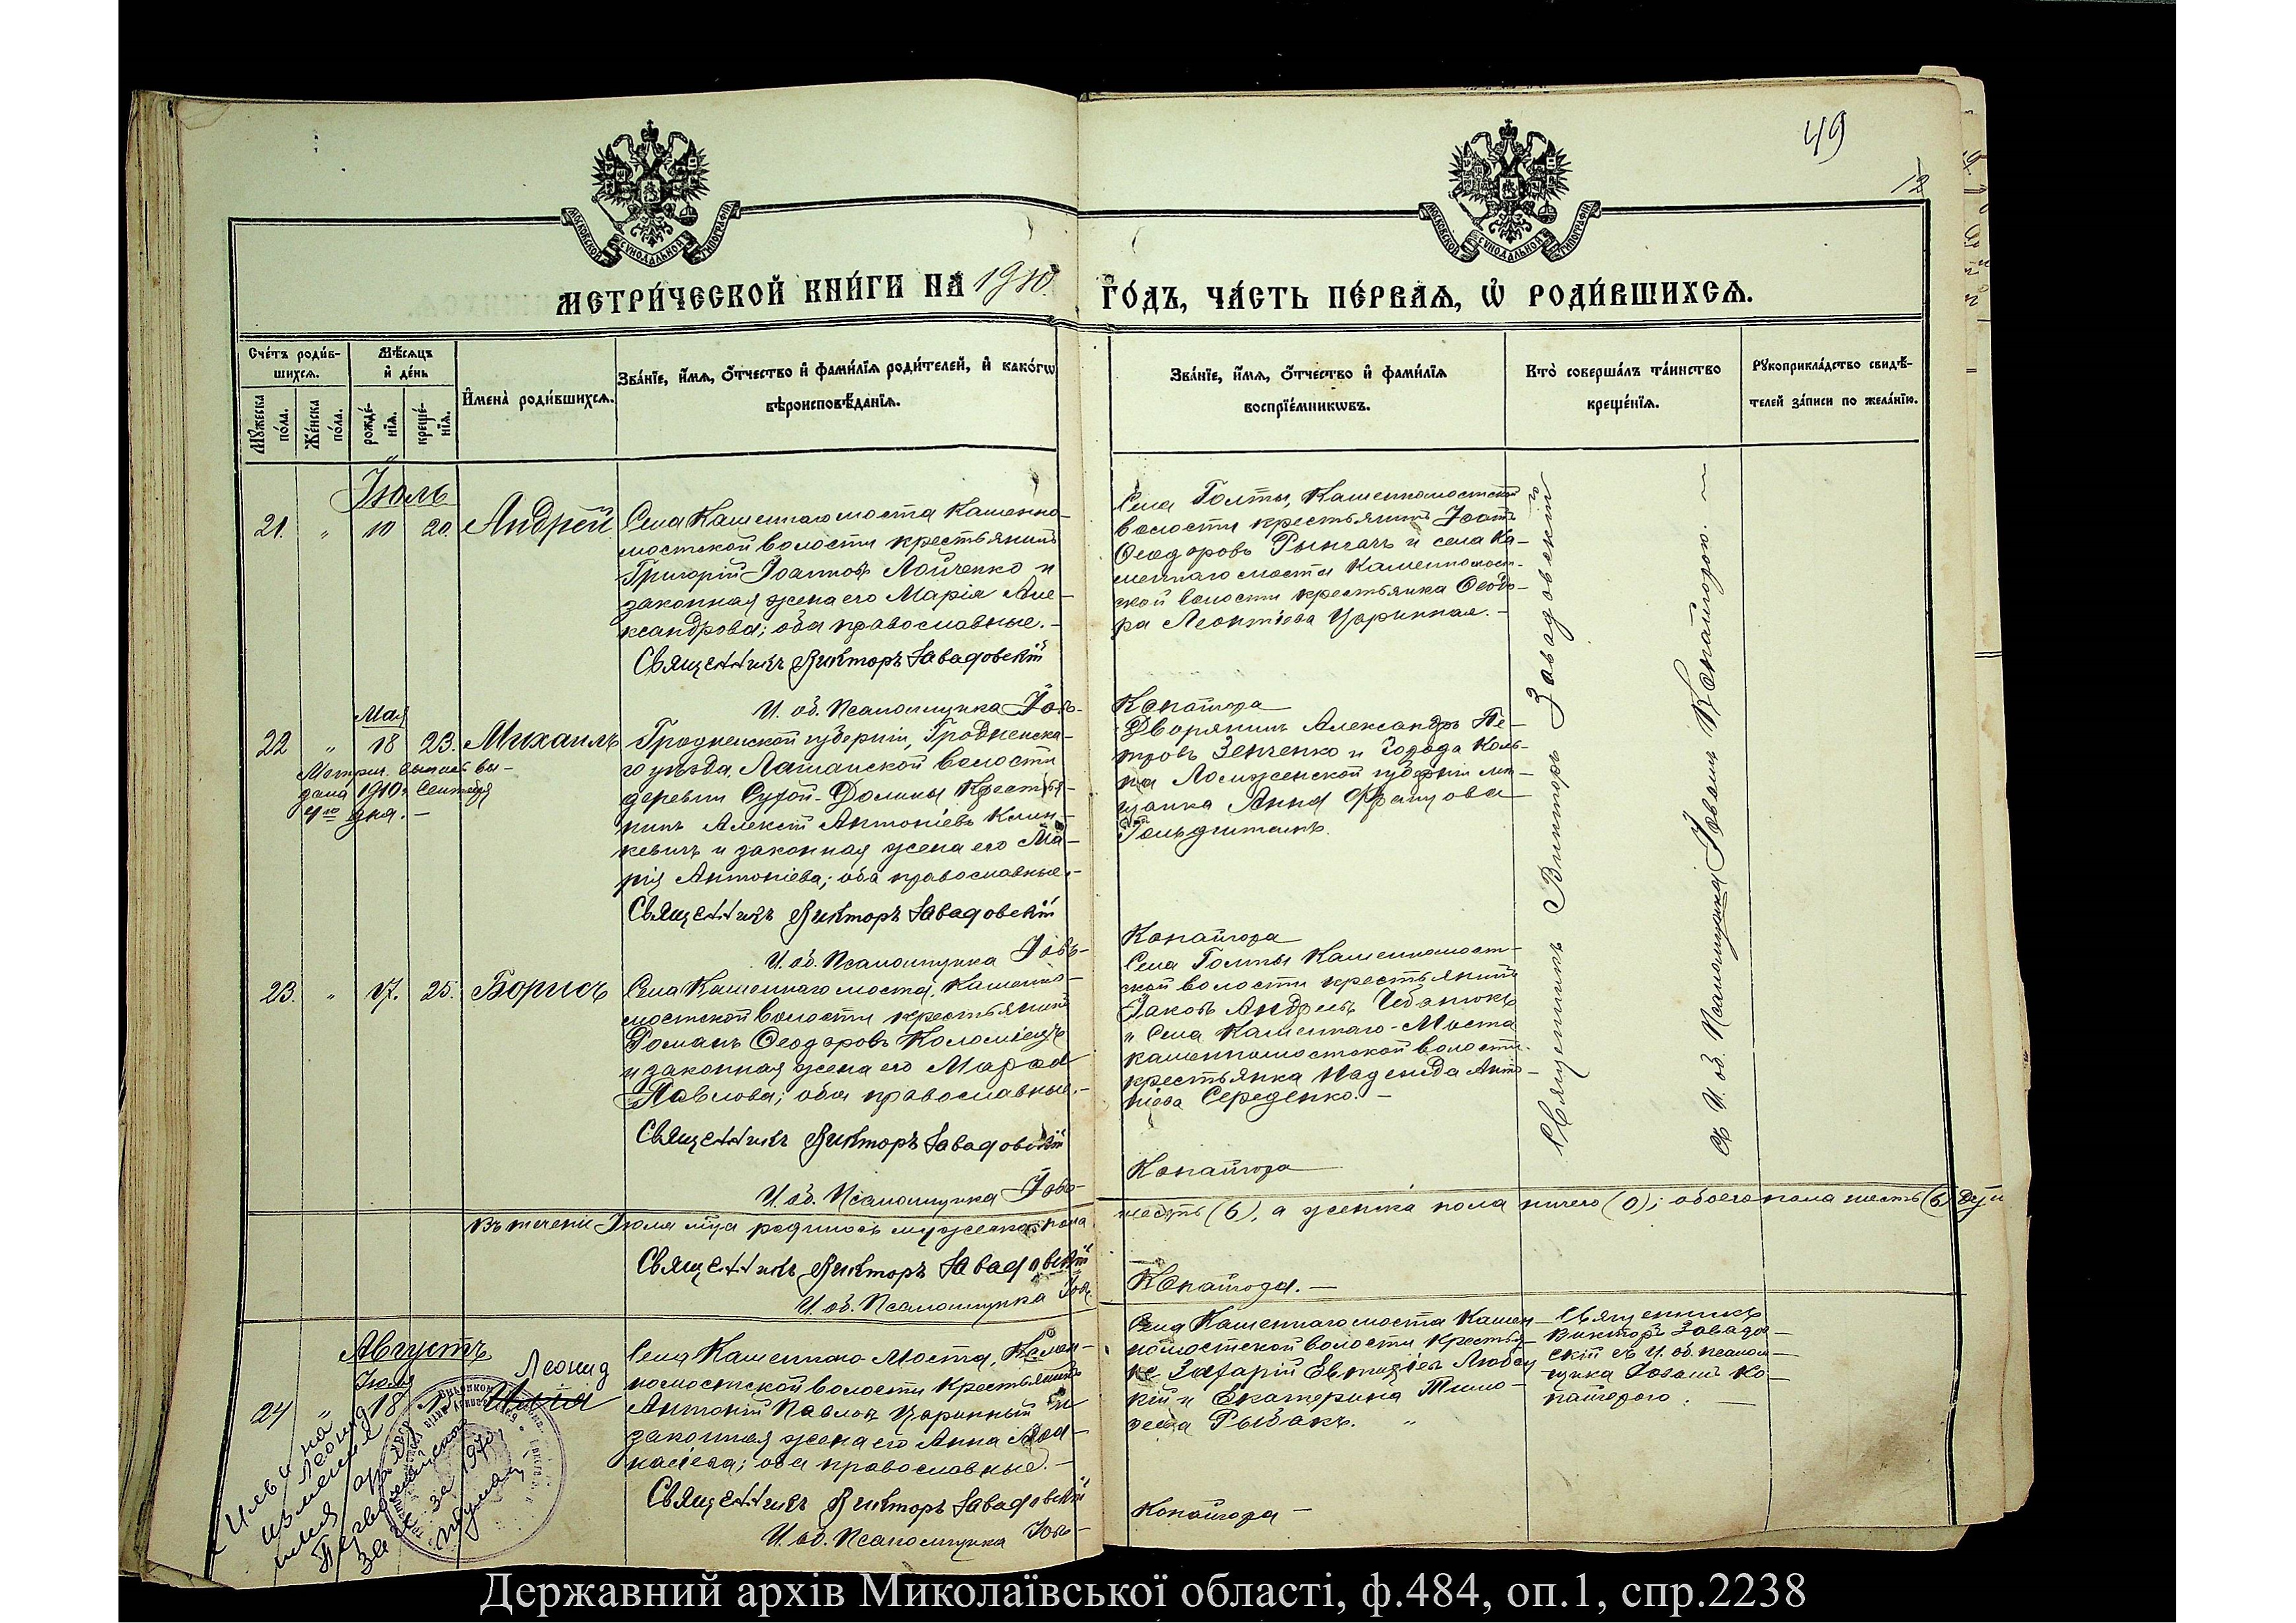 49
12
МОСКОВСКОЙ СѴНОДАЛЬНОЙ ТИПОГРАФІИ
МОСКОВСКОЙ СѴНОДАЛЬНОЙ ТИПОГРАФІИ
МЕТРИ́ЧЕСКОЙ КНИ́ГИ НА 1910. ГО́ДЪ, ЧА́СТЬ ПЕ́РВАѦ, Ѡ҆ РОДИ́ВШИХСѦ.
Сче́тъ роди́в-
шихсѧ.
Мꙋ́жеска по́ла.
Же́нска по́ла.
Мѣ́сѧцъ
и҆ де́нь
рожде́-
нїѧ.
креще́-
нїѧ.
И҆мена̀ роди́вшихсѧ.
Зва́нїе, и҆́мѧ, ѻ҆́тчество и҆ фами́лїѧ роди́телей, и҆ како́гѡ
вѣроисповѣ́данїѧ.
Зва́нїе, и҆́мѧ, ѻ҆́тчество и҆ фами́лїѧ
воспрїе́мникѡвъ.
Кто̀ соверша́лъ та́инство
креще́нїѧ.
Рꙋкоприкла́дство свидѣ́-
телей за́писи по жела́нїю.
Іюль
21. " 10 20. Андрей.
Села Каменнаго моста Каменно-
мостской волости крестьянинъ
Григорій Іоанновъ Лойченко и
законная жена его Марія Але-
ксандрова; оба православные. -
Священникъ Викторъ Завадовскій
И. об. Псаломщика Іов-
Села Голты, Каменномостской
волости крестьянинъ
Ѳеодоровъ и села Ка-
меннаго моста Каменномост-
ской волости крестьянка Ѳеодо-
ра Леонтіева Царинная. -
Копайгора
Мая
22 " 18 23. Михаилъ
Метрич. выпись вы-
дана 1910 г. Сентября
4го дня. -
Гродненской губерніи, Гродненска-
го уѣзда, Лашанской волости
деревни Сухой-Долины Крестья-
нинъ Алексій Антоніевъ Клин-
кевичъ и законная жена его Ма-
рія Антоніева; оба православные. -
Священникъ Викторъ Завадовскій
И. об. Псаломщика Іовъ-
Дворянинъ Александръ Пе-
тровъ Зенченко и Города Коль-
на Ломженской губерніи мѣ-
щанка Анна Францова
Гольдштейнъ.
Копайгора
23. " 17. 25. Борисъ
Села Каменнаго моста, Каменно-
мостской волости крестьянинъ
Романъ Ѳеодоровъ Коломіецъ
и законная жена его
Павлова; оба православные. -
Священникъ Викторъ Завадовскій
И. об. Псаломщика Іово-
Села Голты Каменномост-
ской волости крестьянинъ
Іаковъ Андреевъ Чебанюкъ
и Села Каменнаго-Моста
каменномостской волости
крестьянка Надежда Анто-
ніева Середенко. -
Копайгора
Священникъ Викторъ Завадовскій
съ И. об. Псаломщика Іовомъ Копайгорою. —
Въ теченіи Іюля мца родилось мужеска пола шесть (6), а женска пола ничего (0); обоего пола шесть (6) душ
Священникъ Викторъ Завадовскій
И. об. Псаломщика Іов
Копайгора. —
Августъ
Іюля
24 " 18 Илія Леонид
Села Каменнаго-Моста, Камен-
номостской волости Крестьянинъ
Антоній Павловъ Царинный и
законная жена его Анна
оба православные. -
Священникъ Викторъ Завадовскій
И. об. Псаломщика Іов-
Села Каменнаго моста Камен-
номостской волости Крестья-
не Захарій Любец
кій и Екатерина Тимо-
Рыбакъ. "
Копайгора —
Священникъ
Викторъ Завадов-
скій съ И. об. псалом-
щика Іовомъ Ко-
пайгорою. —
Илья на
Леонид
изменена
за 1970
Державний архів Миколаївської області, ф.484, оп.1, спр.2238